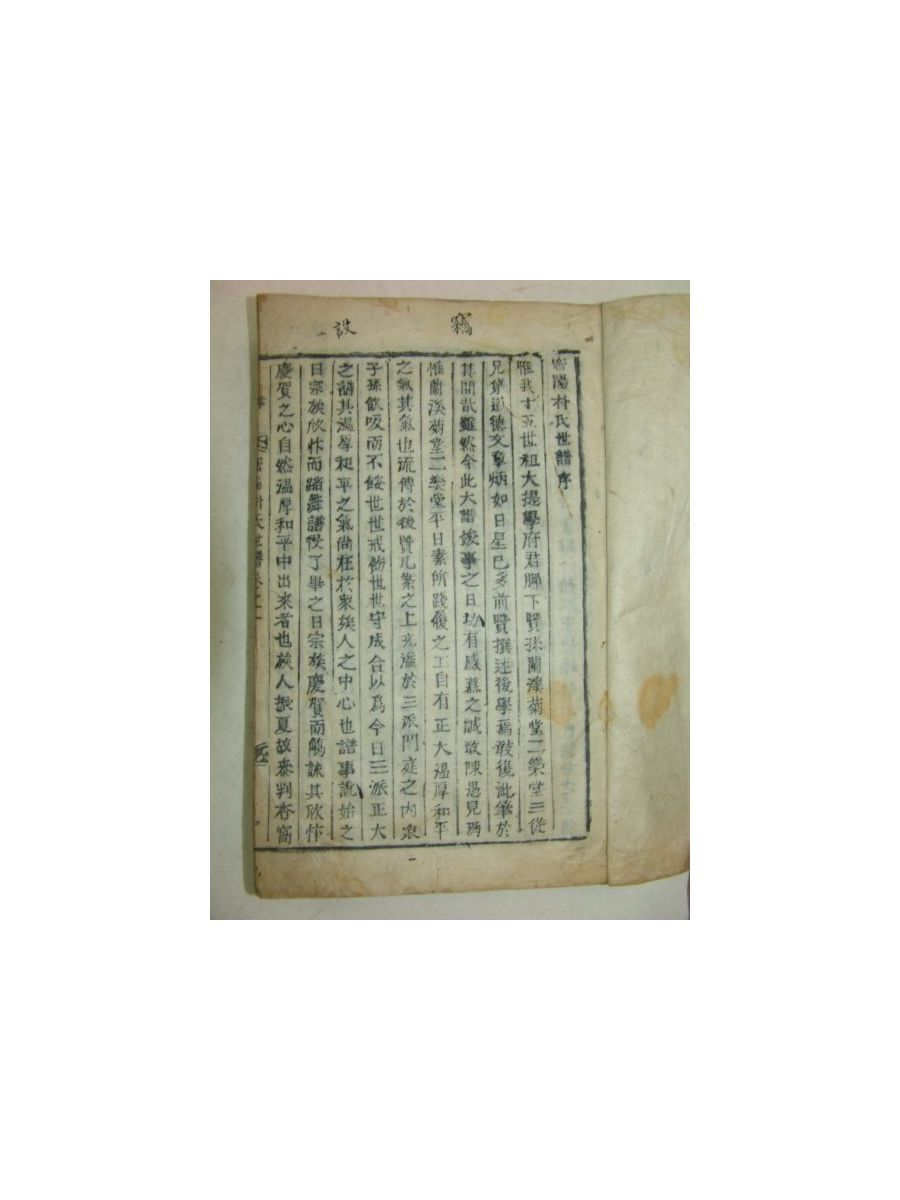 竊
設
密陽朴氏世譜序
惟我十五世祖大提學府君膝下賢孫蘭溪菊堂二樂堂三從
兄弟道德文章炳如日星已多前賢撰述後學焉敢復泚筆於
其間哉雖然今此大譜竣事之日功有感慕之誠敢陳愚見焉
惟蘭溪菊堂二樂堂平日素所踐履之工自有正大溫厚和平
之氣其氣也流傳於後賢几案之上充溢於三派門庭之內衆
子孫飮吸而不餒世世戒飭世世守成合以爲今日三派正大
之譜其溫厚和平之氣尙在於衆族人之中心也譜事說始之
日宗族欣忭而踏舞譜役了畢之日宗族慶賀而觴詠其欣忭
慶賀之心自然溫厚和平中出來者也族人振夏故參判杏窩
氏世譜卷之一